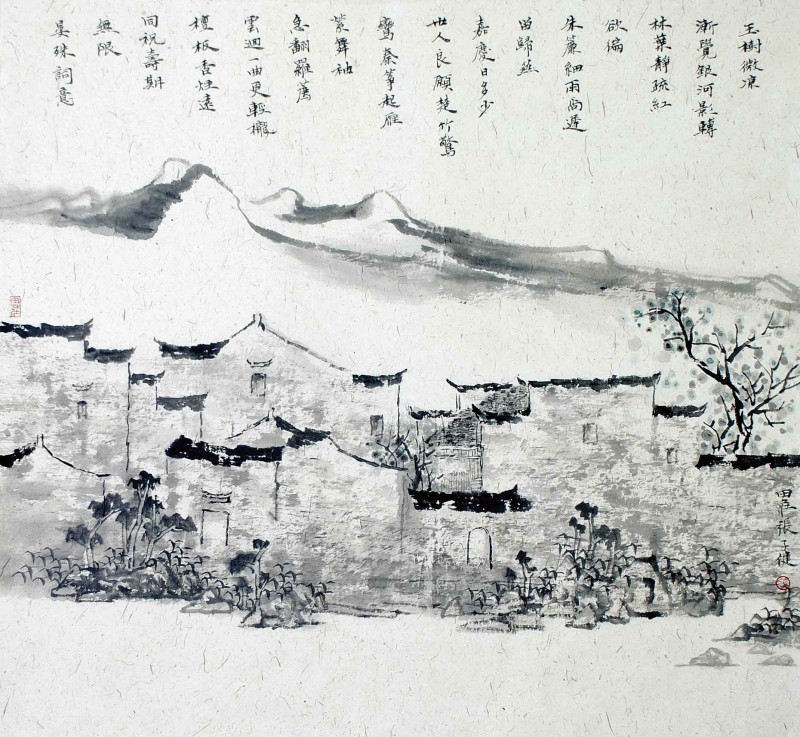 玉樹微凉
漸覺銀河影轉
林葉靜疏紅
欲徧
朱簾細雨尚遲
留歸燕
嘉慶日多少
世人良願楚竹驚
鸞秦箏起雁
縈舞袖
急翻羅薦
雲迴一曲更輕櫳
檀板香炷遠
同祝壽期
無限
晏殊詞意
張